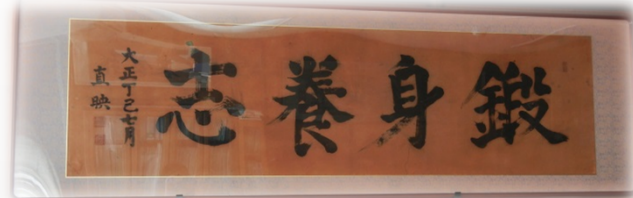 鍛身養志
大正丁巳七月
直映